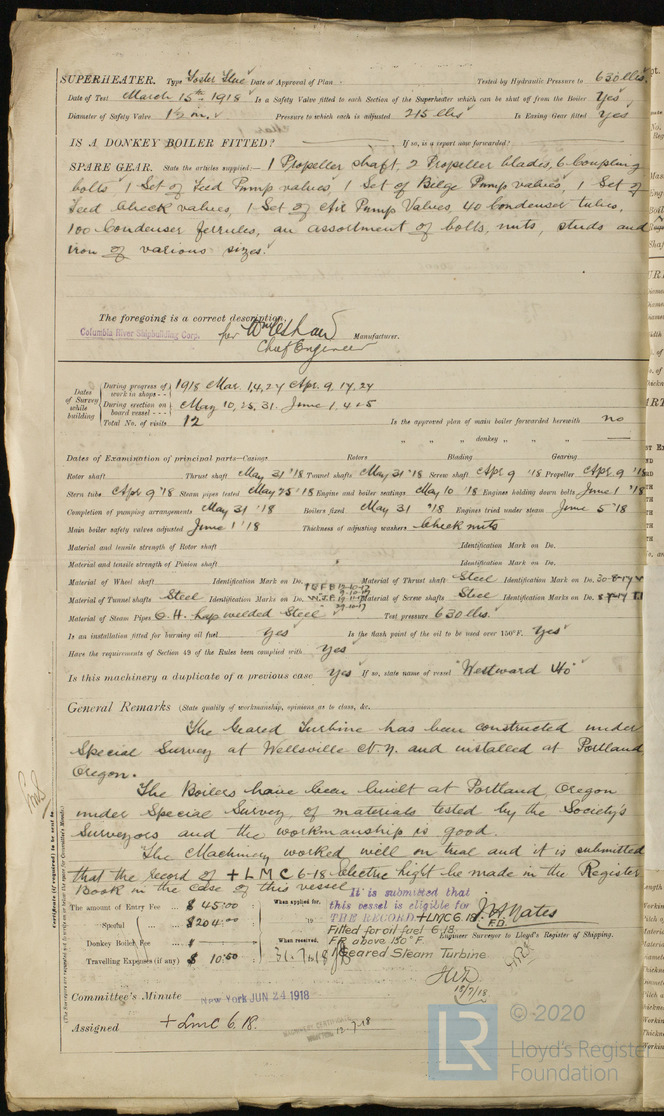 SUPERHEATER. Type Foster Flue Date of Approval of Plan - Tested by Hydraulic Pressure to 630 lbs.
Date of Test March 15th 1918 Is a Safety Valve fitted to each Section of the Superheater which can be shut off from the Boiler Yes
Diameter of Safety Valve 1½ in. Pressure to which each is adjusted 215 lbs Is Easing Gear fitted Yes
IS A DONKEY BOILER FITTED? — If so, is a report now forwarded? —
SPARE GEAR. State the articles supplied:— 1 Propeller shaft, 2 Propeller blades, 6 Coupling
bolts 1 Set of Feed Pump valves, 1 Set of Belge Pump valves, 1 Set of
Feed Check valves, 1 Set of Air Pump Valves, 40 Condenser tubes,
100 Condenser ferrules, an assortment of bolts, nuts, studs and
iron of various sizes.
The foregoing is a correct description,
Columbia River Shipbuilding Corp. for Manufacturer.
Chief Engineer
Dates of Survey while building
During progress of work in shops - - 1918 Mar. 1, 4, 27 Apr. 9, 17, 24
During erection on board vessel - - - May 10, 25, 31. June 1, 4 & 5
Total No. of visits 12 Is the approved plan of main boiler forwarded herewith no
" " " donkey " " " —
Dates of Examination of principal parts—Casings Rotors Blading Gearing
Rotor shaft Thrust shaft May 31 '18 Tunnel shafts May 31 '18 Screw shaft Apr 9 '18 Propeller Apr. 9 '18
Stern tube Apr 9 '18 Steam pipes tested May 25 '18 Engine and boiler seatings May 10 '18 Engines holding down bolts June 1 '18
Completion of pumping arrangements May 31 '18 Boilers fixed May 31 '18 Engines tried under steam June 5 '18
Main boiler safety valves adjusted June 1 '18 Thickness of adjusting washers Check nuts
Material and tensile strength of Rotor shaft Identification Mark on Do.
Material and tensile strength of Pinion shaft Identification Mark on Do.
Material of Wheel shaft Identification Mark on Do. Material of Thrust shaft Steel Identification Mark on Do.
Material of Tunnel shafts Steel Identification Marks on Do. Material of Screw shafts Steel Identification Marks on Do.
Material of Steam Pipes O.H. Lap welded Steel Test pressure 630 lbs.
Is an installation fitted for burning oil fuel Yes Is the flash point of the oil to be used over 150°F. Yes
Have the requirements of Section 49 of the Rules been complied with Yes
Is this machinery a duplicate of a previous case Yes If so, state name of vessel "Westward Ho"
General Remarks (State quality of workmanship, opinions as to class, &c.
The Geared Turbine has been constructed under
Special Survey at Wellsville N.Y. and installed at Portland
Oregon.
The Boilers have been built at Portland, Oregon
under Special Survey, of materials tested by the Society's
Surveyors and the workmanship is good.
The Machinery worked well on trial and it is submitted
that the record of + LMC 6-18 Electric light be made in the Register
Book in the case of this vessel
It is submitted that
this vessel is eligible for
THE RECORD +LMC 6.18.
Fitted for oil fuel 6.18.
F.P. above 150°F.
Geared Steam Turbine
The amount of Entry Fee ... $ 45.00 : When applied for,
Special ... $ 204.00 : 19
Donkey Boiler Fee ... $ — : When received,
Travelling Expenses (if any) $ 10.50 :
Engineer Surveyor to Lloyd's Register of Shipping.
15/7/18
Committee's Minute New York JUN 24 1918
Assigned + LMC 6.18.
12-7-18
©2020
Lloyd's Register
Foundation